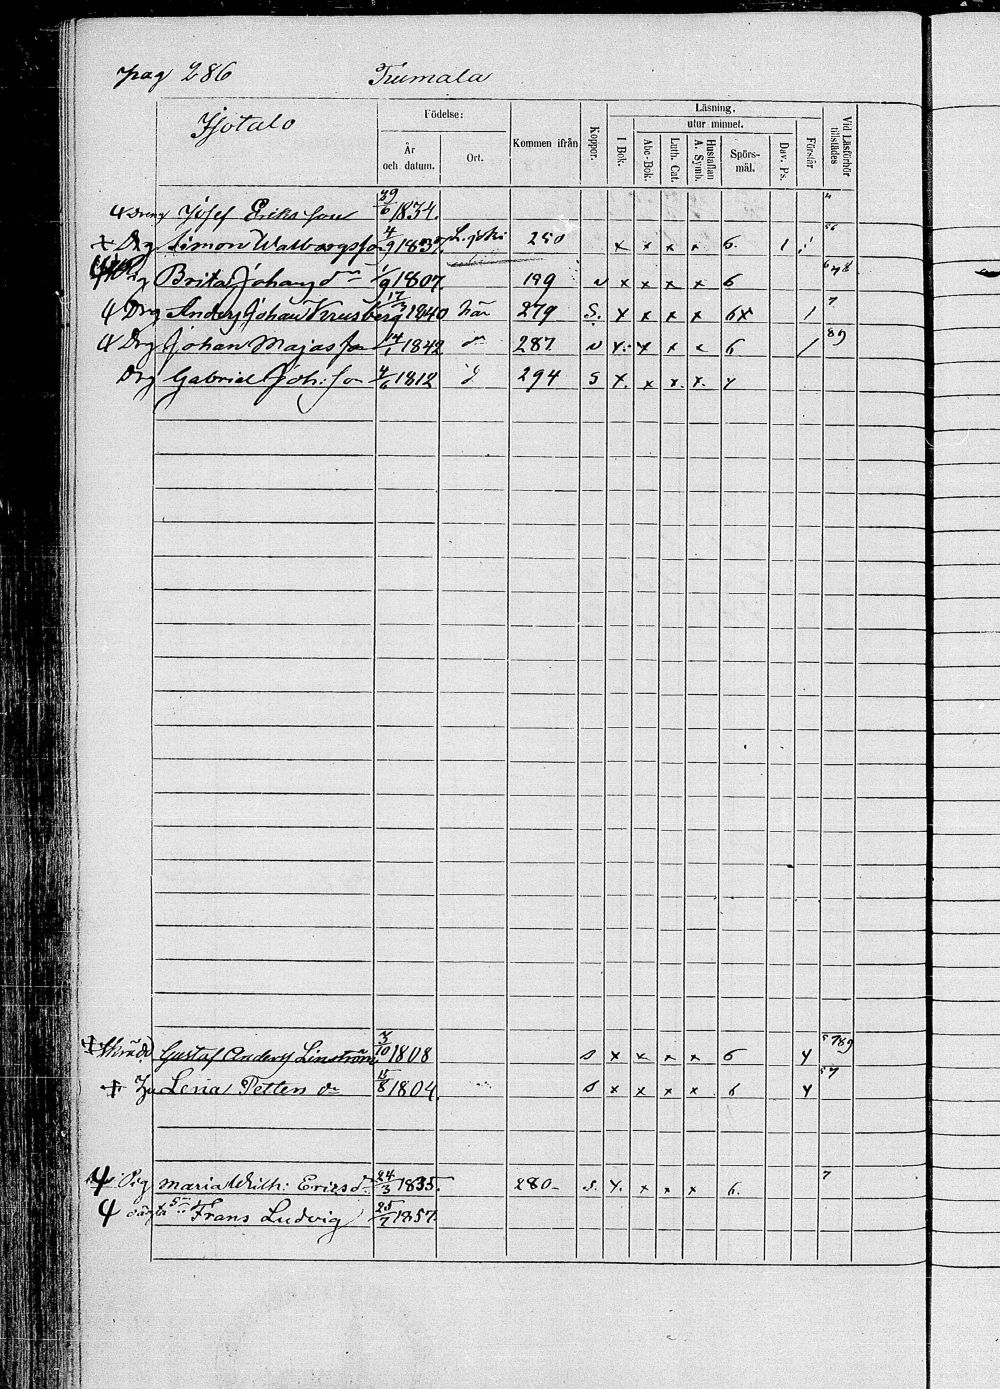 pag 286 Trumala
Isotalo
Födelse:
År och datum.
Ort.
Kommen ifrån
Koppor.
Läsning,
I Bok.
utur minnet.
Abc-Bok.
Luth. Cat.
Hustaflan A. Symb.
Spörs-mål.
Dav. Ps.
Förstår
Vid Läsförhör tillstädes
Dreng Josef Eriksson 29/6 1834.
Drg Simon Walborgsson 4/9 1837. 250 x x x x 6. 1 1
Brita Johansdr 1/9 1807. 199 v x x x x 6 678
Drg Anders Johan Krusberg 17/3 1840 här 279 S. x x x x 6x / 7
Drg Johan Majasson 14/1 1842 d 287 v x x x x 6 / 89
Drg Gabriel Joh:son 4/6 1812 d 294 s x x x x x
Gustaf Anders Linström 3/10 1808 s x x x x 6 y 5789
Lena Petters dr 15/8 1804. s x x x x 6 y 57
Pig Maria Wilh: Eriksd. 24/3 1835. 280 s. x x x x 6. 7
oäkta sn Frans Ludvig 25/7 1857.